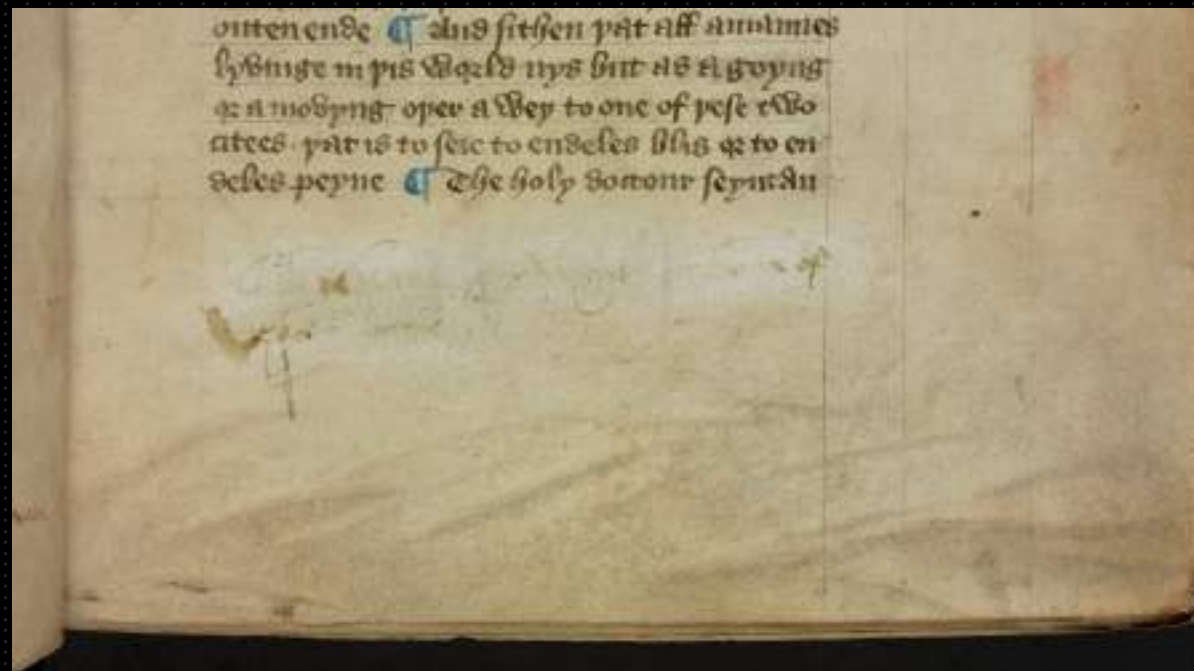 outen ende ¶ And sithen þat all a mannes
lyvinge in þis world nys but as a goyng
or a movyng oþer a wey to one of þese two
citees · þat is to seie to endeles blis or to en
deles peyne ¶ The holy doctour seynt Au
of